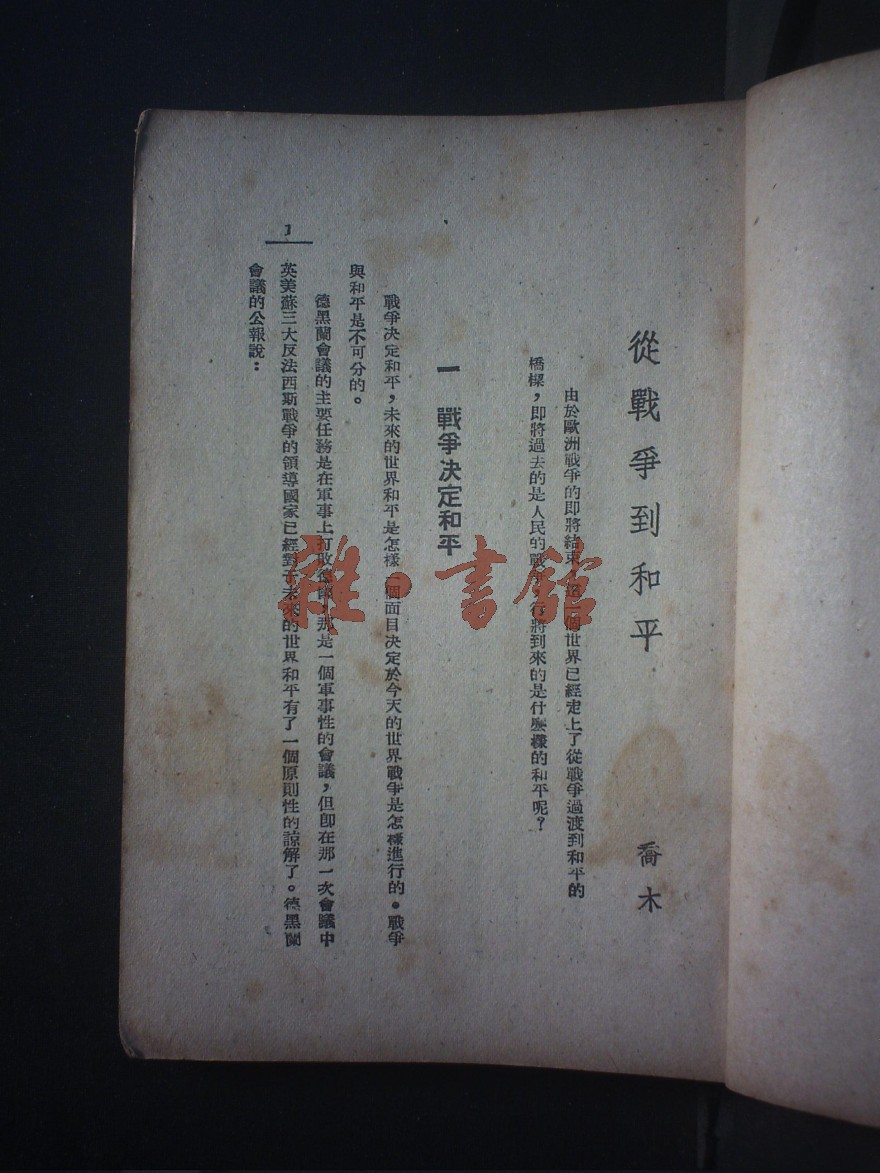 從戰爭到和平
喬木
由於歐洲戰爭的即將結束,這一個世界已經走上了從戰爭過渡到和平的
橋樑,即將過去的是人民的戰爭,行將到來的是什麼樣的和平呢?
一 戰爭決定和平
戰爭決定和平,未來的世界和平是怎樣一個面目決定於今天的世界戰爭是怎樣進行的。戰爭
與和平是不可分的。
德黑蘭會議的主要任務是在軍事上打敗德國,那是一個軍事性的會議,但卽在那一次會議中
英美蘇三大反法西斯戰爭的領導國家已經對于未來的世界和平有了一個原則性的諒解了。德黑蘭
會議的公報說:
1
雜·書館